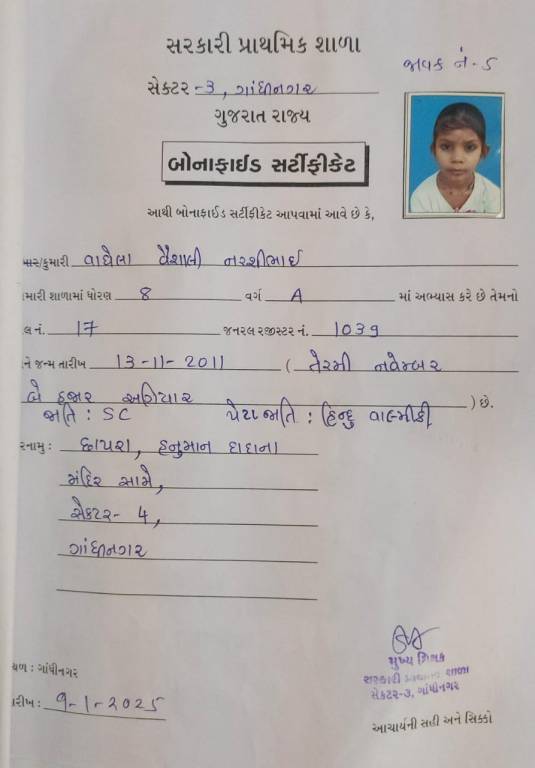 સરકારી પ્રાથમિક શાળા
જાવક નં - ૬
સેક્ટર - ૩, ગાંધીનગર
ગુજરાત રાજ્ય
બોનાફાઈડ સર્ટીફીકેટ
આથી બોનાફાઈડ સર્ટીફીકેટ આપવામાં આવે છે કે,
કુમારી વાઘેલા વૈશાલી નરશીભાઈ
મારી શાળામાં ધોરણ 8 વર્ગ A માં અભ્યાસ કરે છે તેમનો
લ નં. 17 જનરલ રજીસ્ટર નં. 1039
ને જન્મ તારીખ 13-11-2011 ( તેરમી નવેમ્બર
બે હજાર અગિયાર ) છે.
જાતિ : SC પેટા જાતિ : હિન્દુ વાલ્મીકી
રનામુ : છાપરા, હનુમાન દાદાના
મંદિર સામે,
સેક્ટર - 4,
ગાંધીનગર
મુખ્ય શિક્ષક
સરકારી પ્રાથમિક શાળા
સેકટર-૩, ગાંધીનગર
થળ : ગાંધીનગર
ારીખ : ૧-1-૨૦૨૫
આચાર્યની સહી અને સિક્કો